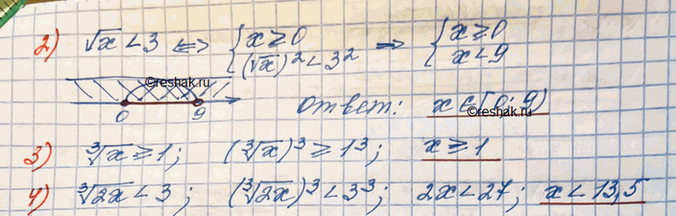 2) √x < 3 <=> { x ≥ 0 (√x)² < 3² => { x ≥ 0 x < 9
©reshak.ru
0 9 Ответ: x ∈ [0; 9)
©reshak.ru
3) ∛x ≥ 1; (∛x)³ ≥ 1³; x ≥ 1
4) ∛2x < 3; (∛2x)³ < 3³; 2x < 27; x < 13,5